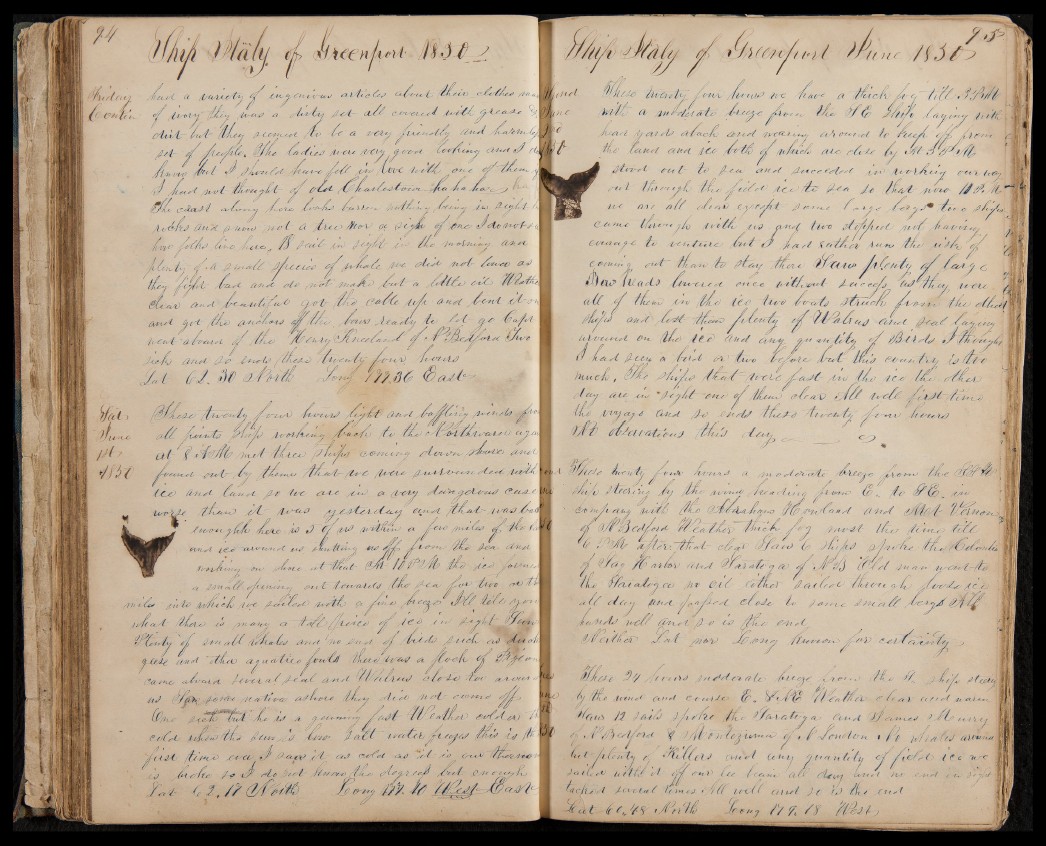 94
Ship Italy of Greenport 1850
Friday
Contin.
had a variety of ingenious articles about their clothes
of ivory they was a dirty set all covered with grease &
dirt but they seemed to be a very friendly and harmless
set of people. The ladies were very good looking and I
but I should have fell in love with one of them
I had not thought of old Charlestown ha ha ha
The coast along here looks barren nothing being in sight
rocks and snow not a tree nor a sign of one I do not
how folks live here, 18 sail in sight in the morning and
plenty of a small species of whale we did not lower as
they fight bad and do not make but a little oil Weather
clear and beautiful got the cable up and bent it on
and got the anchors off the bows ready to let go Capt
went aboard of the Henry Kneeland of N Bedford Two
sick and so ends these twenty four hours
Lat 62.30 North Long 179.36 East
Wed
June
1st
1850
These twenty four hours light and baffling winds from
all points ship working back to the Northward again
at 8 AM met three ships coming down shore and
found out by them that we were surrounded with
ice and land so we are in a very dangerous case
worse than it was yesterday and that was bad
enough here is 3 of us within a few miles of the
and ice around us shutting us off from the sea and
working in shore at that At 10 PM the ice formed
a small opening out towards the sea for two or
miles into which we sailed with a fine breeze I'll tell you
what there is many a tall piece of ice in sight
Plenty of small whales and no end of birds such as ducks
geese and other aquatic fowls there was a flock of Pigeons
came aboard several seal and Walrus close to around
us Saw some natives ashore they did not come off
One sick but he is a gaining fast Weather colder
cold when the sun is low salt water freezes this is the
first time ever I saw it as cold as it is our thermom
is broke so I do not know the degrees but enough
Lat 62.17 North Long 179.40 West East
95
Ship Italy of Greenport June 1850
2nd
June
These twenty four hours we have a thick fog till 3 PM
with a moderate breeze from the SE Ship laying with
head yards aback and wearing around to keep off from
the land and ice both of which are close by At 3 PM
stood out to sea and succeeded in working our way
out through the field ice to sea so that now 10 P.M
we are all clear except some large bergs two ships
came through with us and two stopped not having
courage to venture but I had rather run the risk of
coming out than to stay there Saw plenty of large
Bow heads lowered once without success as they were
all of them in the ice two boats struck from the other
ships and lost them plenty of Walrus and seal laying
around on the ice and any quantity of Birds I thought
I had seen a bird or two before but this country is too
much, The ships that were fast in the ice the other
day are in sight one of them clear All well first time
the voyage and so ends these twenty four hours
No observations this day
These twenty four hours a moderate breeze from the
ship steering by the wind heading from E. to SE. in
company with the Abraham Howland and Mot Vernon
of N Bedford Weather thick fog most the time till
6 PM after that clear Saw 6 ships spoke the Columbia
of Sag Harbor and Saratoga of N B Old man went to
the Saratoga no oil either sailed through loose ice
all day and passed close to some small bergs All
hands well and so is the end
Neither Lat nor Long known for certainty
These 24 hours moderate breeze from the N. ship steering
by the wind and course E. & NE Weather clear and warm
Saw 12 sails spoke the Saratoga and James Maury
of N Bedford & Montezuma of N London No whales around
but plenty of Killers and any quantity of field ice we
sailed with it off our lee beam all day and no end in sight
tacked several times All well and so is the end
Lat 60.48 North Long 179.18 West